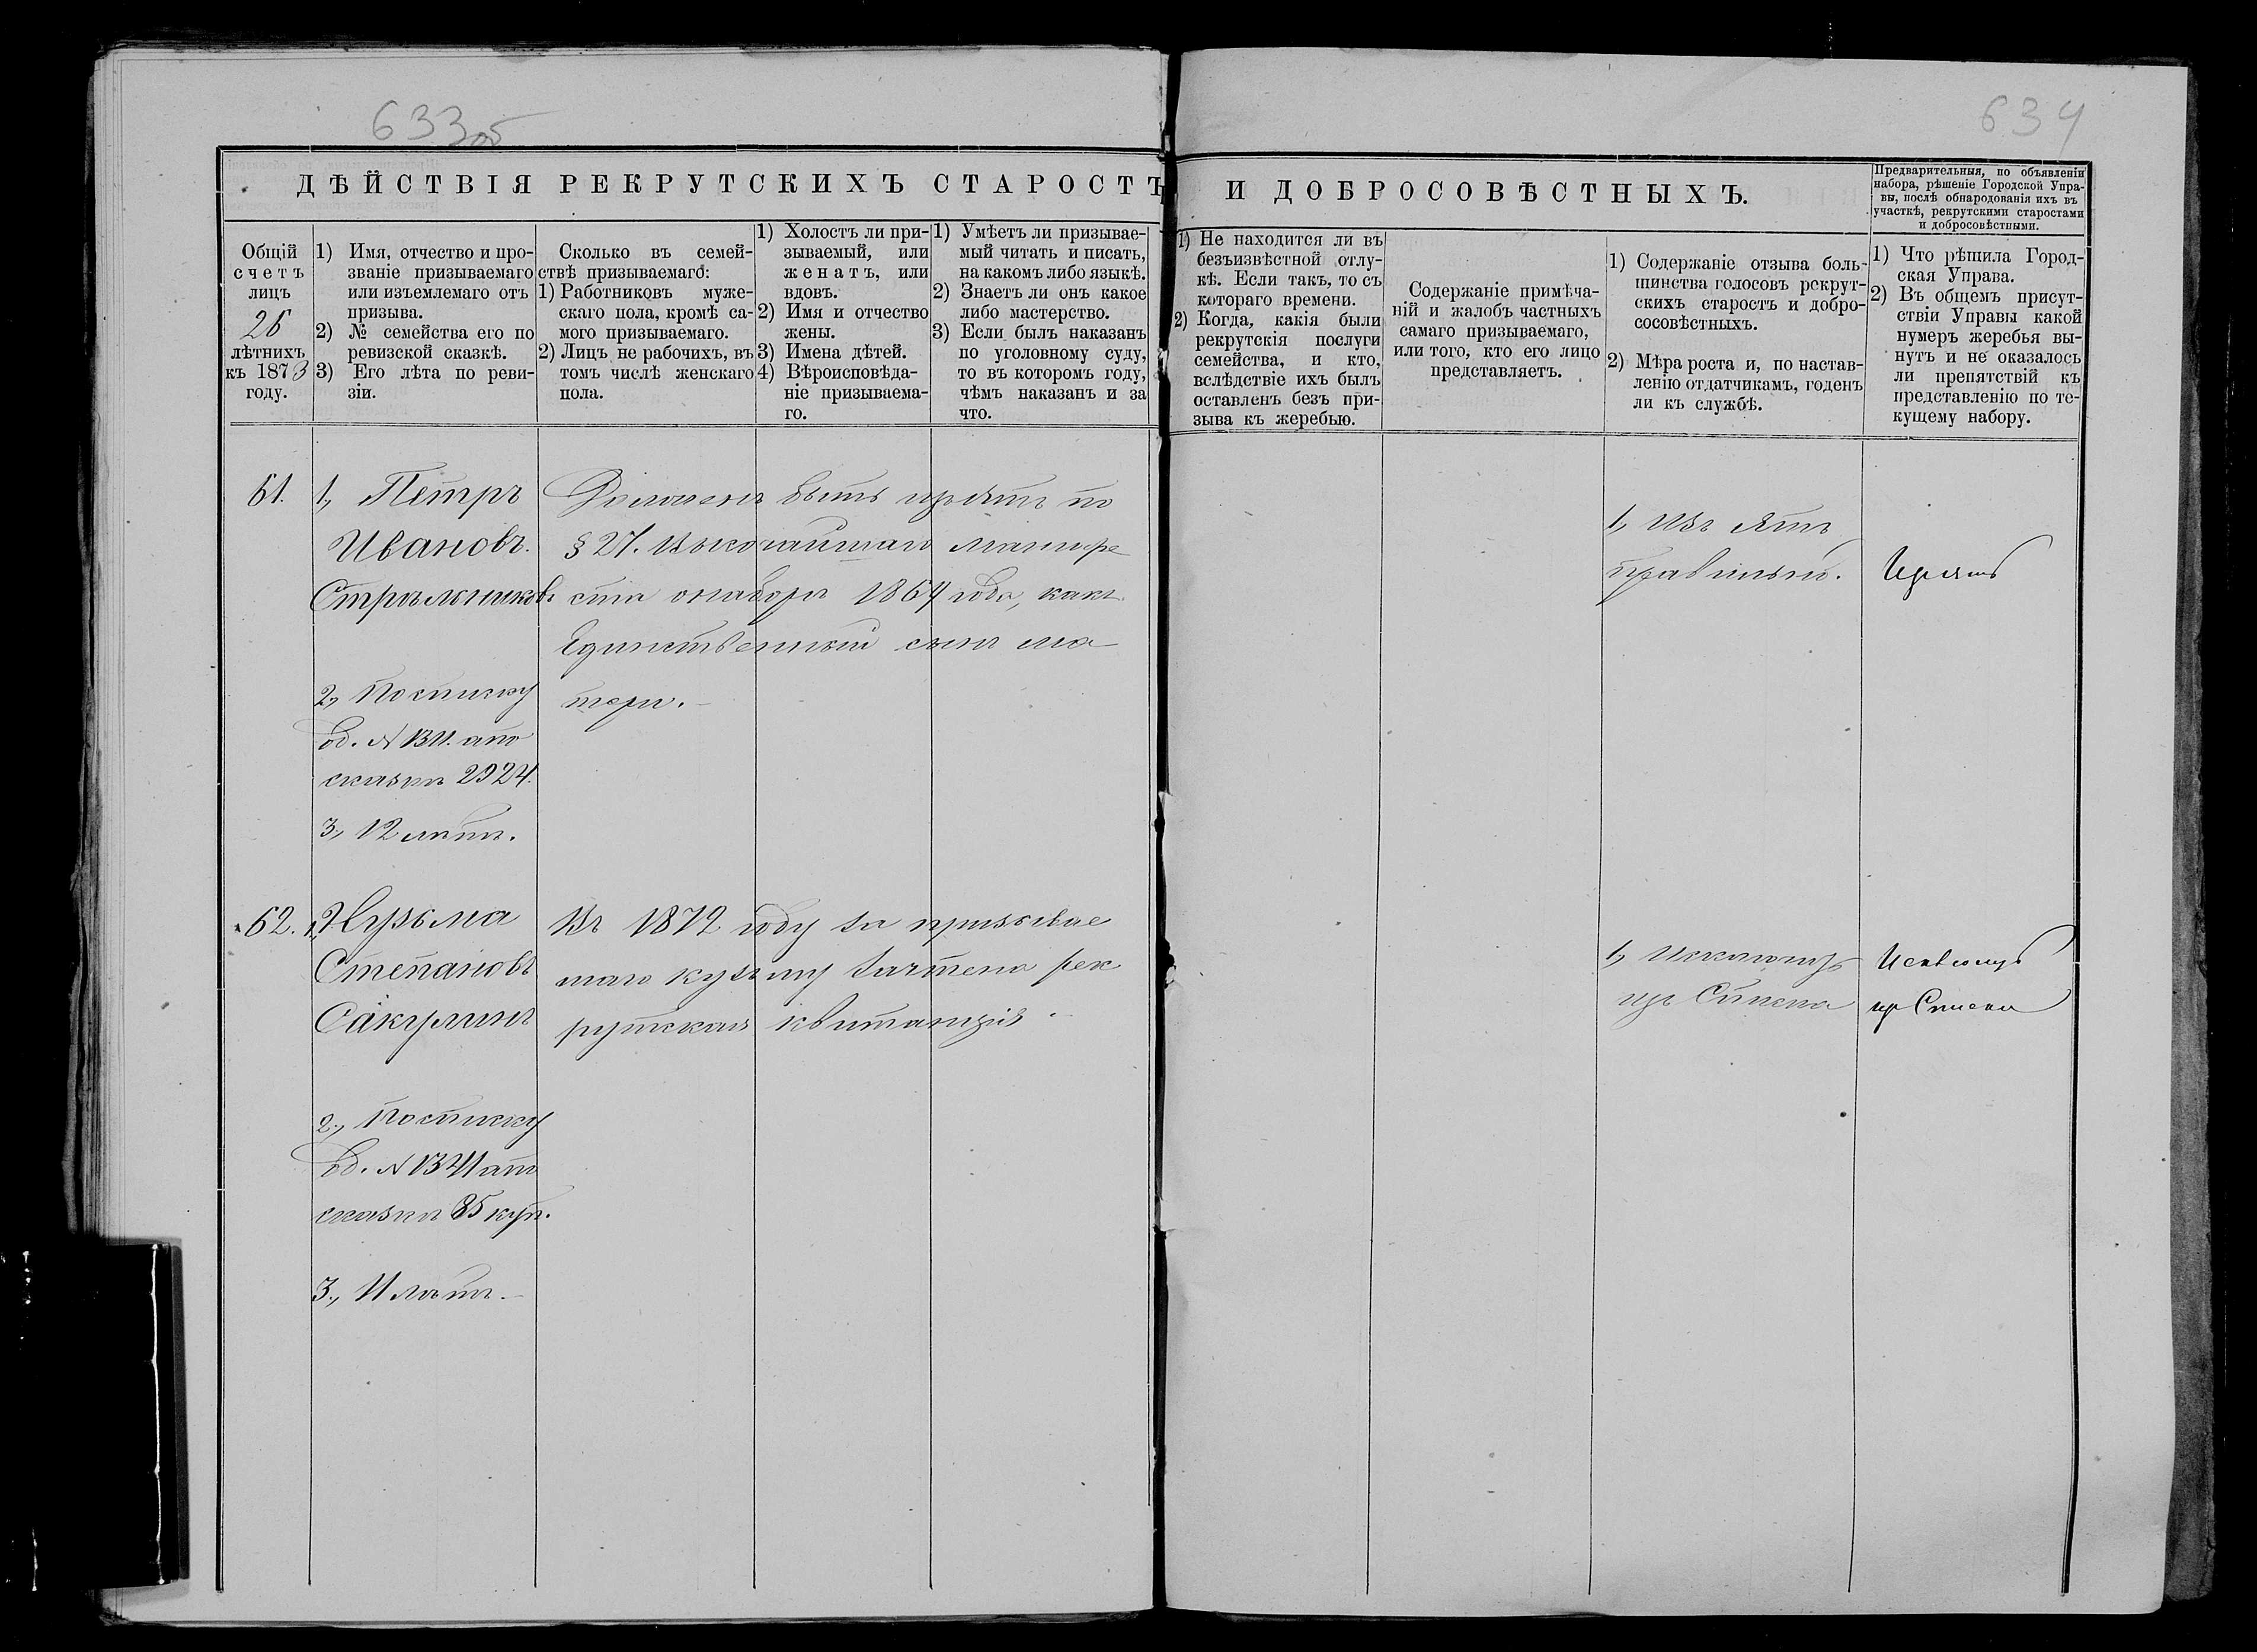 633об
634
ДѢЙСТВІЯ РЕКРУТСКИХЪ СТАРОСТЪ И ДОБРОСОВѢСТНЫХЪ.
Предварительныя, по объявленіи
набора, рѣшеніе Городской Упра-
вы, послѣ обнародованія ихъ въ
участкѣ, рекрутскими старостами
и добросовѣстными.
Общій
счетъ
лицъ
26
лѣтнихъ
къ 1873
году.
1) Имя, отчество и про-
званіе призываемаго
или изъемлемаго отъ
призыва.
2) № семейства его по
ревизской сказкѣ.
3) Его лѣта по реви-
зіи.
Сколько въ семей-
ствѣ призываемаго:
1) Работниковъ муже-
скаго пола, кромѣ са-
мого призываемаго.
2) Лицъ не рабочихъ, въ
томъ числѣ женскаго
пола.
1) Холостъ ли при-
зываемый, или
женатъ, или
вдовъ.
2) Имя и отчество
жены.
3) Имена дѣтей.
4) Вѣроисповѣда-
ніе призываема-
го.
1) Умѣетъ ли призывае-
мый читать и писать,
на какомъ либо языкѣ.
2) Знаетъ ли онъ какое
либо мастерство.
3) Если былъ наказанъ
по уголовному суду,
то въ которомъ году,
чѣмъ наказанъ и за
что.
1) Не находится ли въ
безъизвѣстной отлу-
кѣ. Если такъ, то съ
котораго времени.
2) Когда, какія были
рекрутскія послуги
семейства, и кто,
вслѣдствіе ихъ былъ
оставленъ безъ при-
зыва къ жеребью.
Содержаніе примѣча-
ній и жалобъ частныхъ
самаго призываемаго,
или того, кто его лицо
представляетъ.
1) Содержаніе отзыва боль-
шинства голосовъ рекрут-
скихъ старостъ и добро-
сосовѣстныхъ.
2) Мѣра роста и, по настав-
ленію отдатчикамъ, годенъ
ли къ службѣ.
1) Что рѣшила Город-
ская Управа.
2) Въ общемъ присут-
ствіи Управы какой
нумеръ жеребья вы-
нутъ и не оказалось
ли препятствій къ
представленію по те-
кущему набору.
61.
1, Петръ
Ивановъ.
Стрѣльниковъ
2, По списку
об. N 1341. а по
сказкѣ 2924.
3, 12 лѣтъ.
Долженъ быть изъятъ по
§ 27. Высочайшаго Манифе
ста о наборѣ 1864 года, какъ
Единственный сынъ ма
тери.
1, Изъятъ
правильно.
Изъятъ
62.
1, Кузьма
Степановъ
Сакулинъ
2, По списку
об. N 1341 а по
сказкѣ 85 куп.
3, 11 лѣтъ.
Въ 1872 году за призывае
маго Кузьму зачтена рек
рутская квитанція.
1, Исключить
изъ Списка
Исключить
изъ Списка